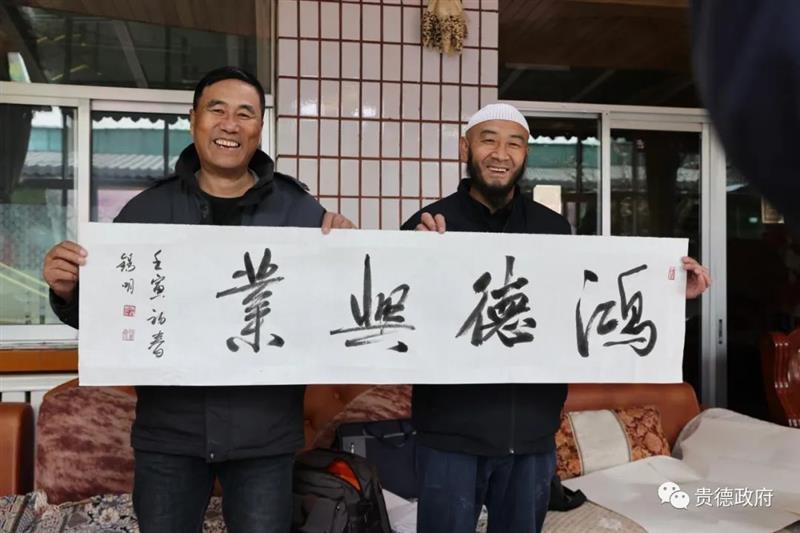 鴻德興業
壬寅初春
錫明
贵德政府